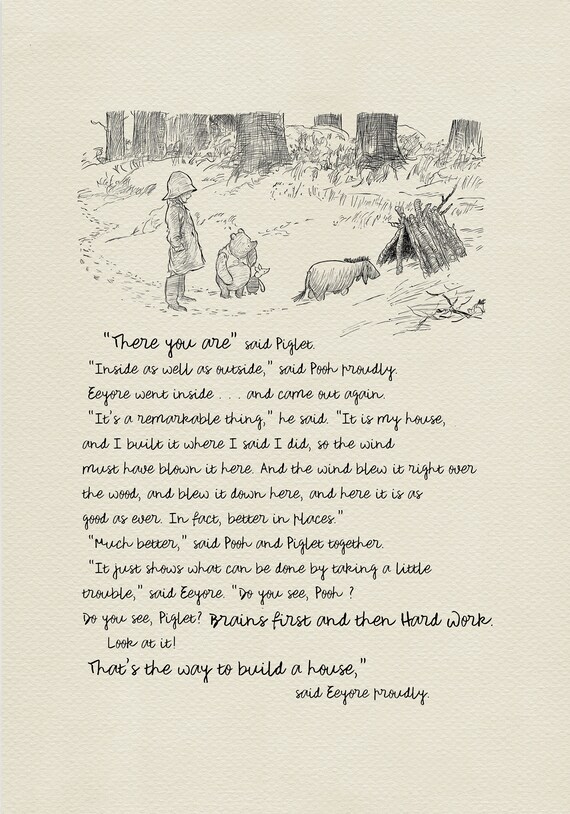 "There you are" said Piglet.
"Inside as well as outside," said Pooh proudly.
Eeyore went inside . . . and came out again.
"It's a remarkable thing," he said. "It is my house,
and I built it where I said I did, so the wind
must have blown it here. And the wind blew it right over
the wood, and blew it down here, and here it is as
good as ever. In fact, better in places."
"Much better," said Pooh and Piglet together.
"It just shows what can be done by taking a little
trouble," said Eeyore. "Do you see, Pooh ?
Do you see, Piglet? Brains first and then Hard Work.
Look at it!
That's the way to build a house,"
said Eeyore proudly.